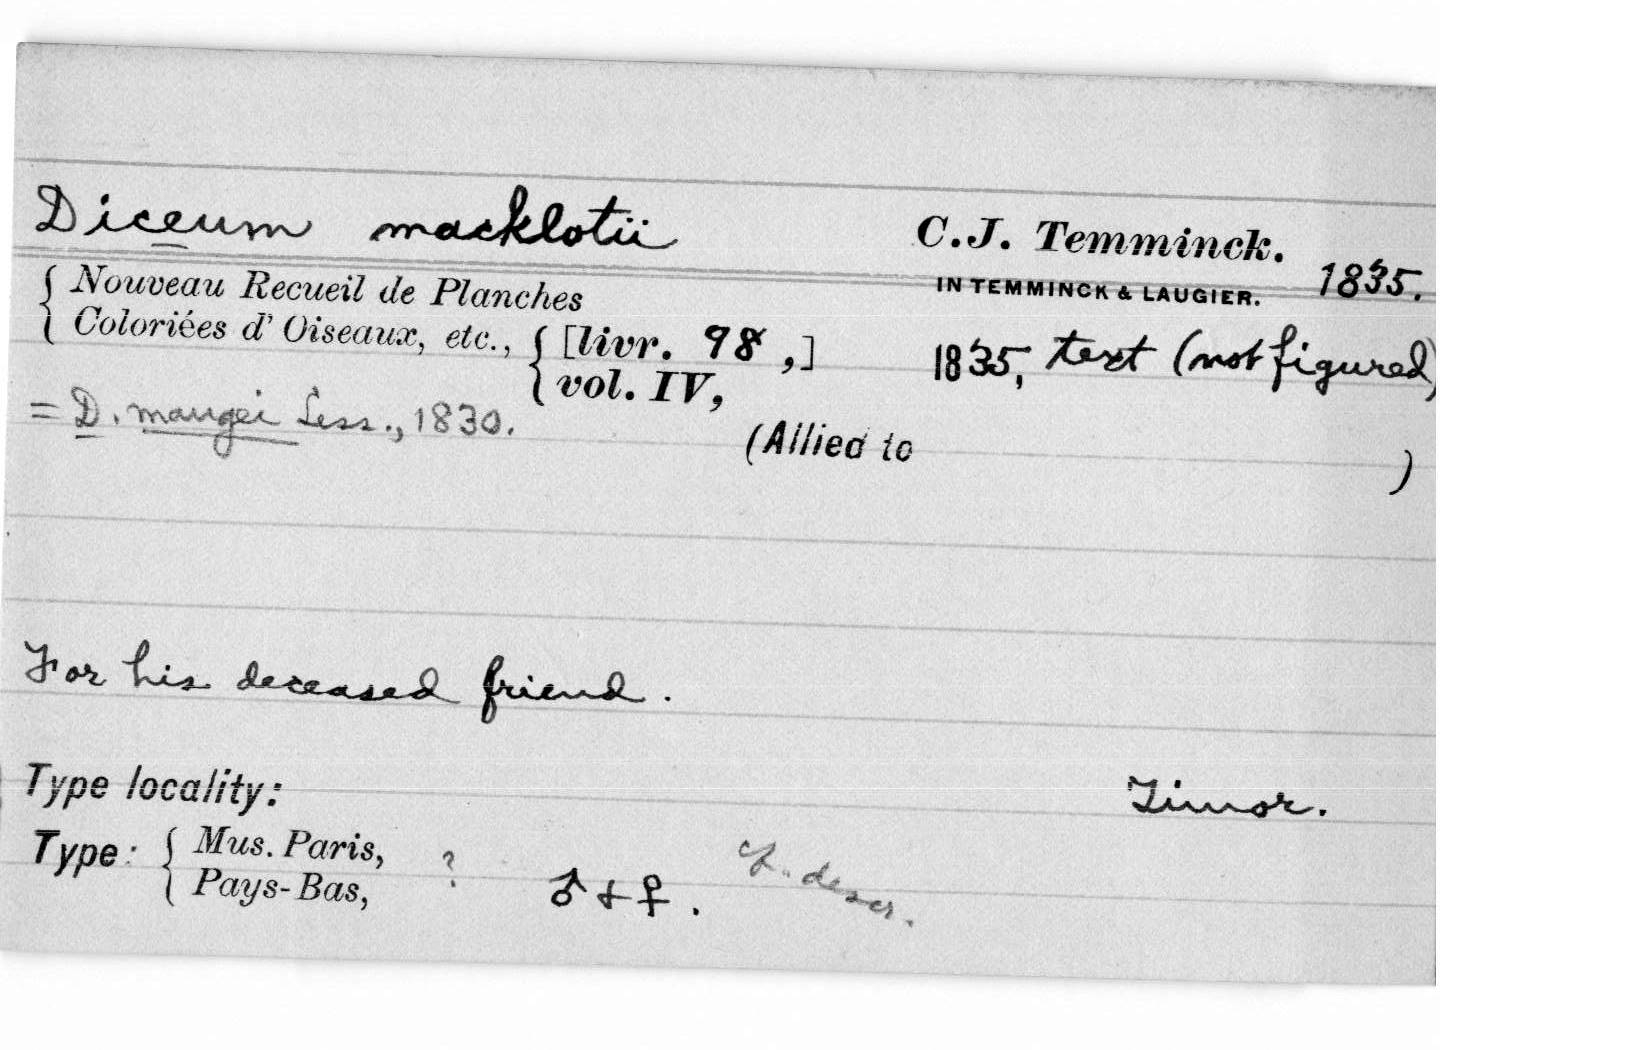 Diceum macklotii C. J. Temminck.
IN TEMMINCK & LAUGIER. 1835.
{ Nouveau Recueil de Planches
Coloriées d' Oiseaux, etc., { [livr. 98 ,] 1835, text (not figured)
vol. IV,
= D. maugei Less., 1830.
(Allied to )
For his deceased friend.
Type locality: Timor.
Type: { Mus. Paris,
Pays-Bas, ? ♂ + ♀. cf. descr.